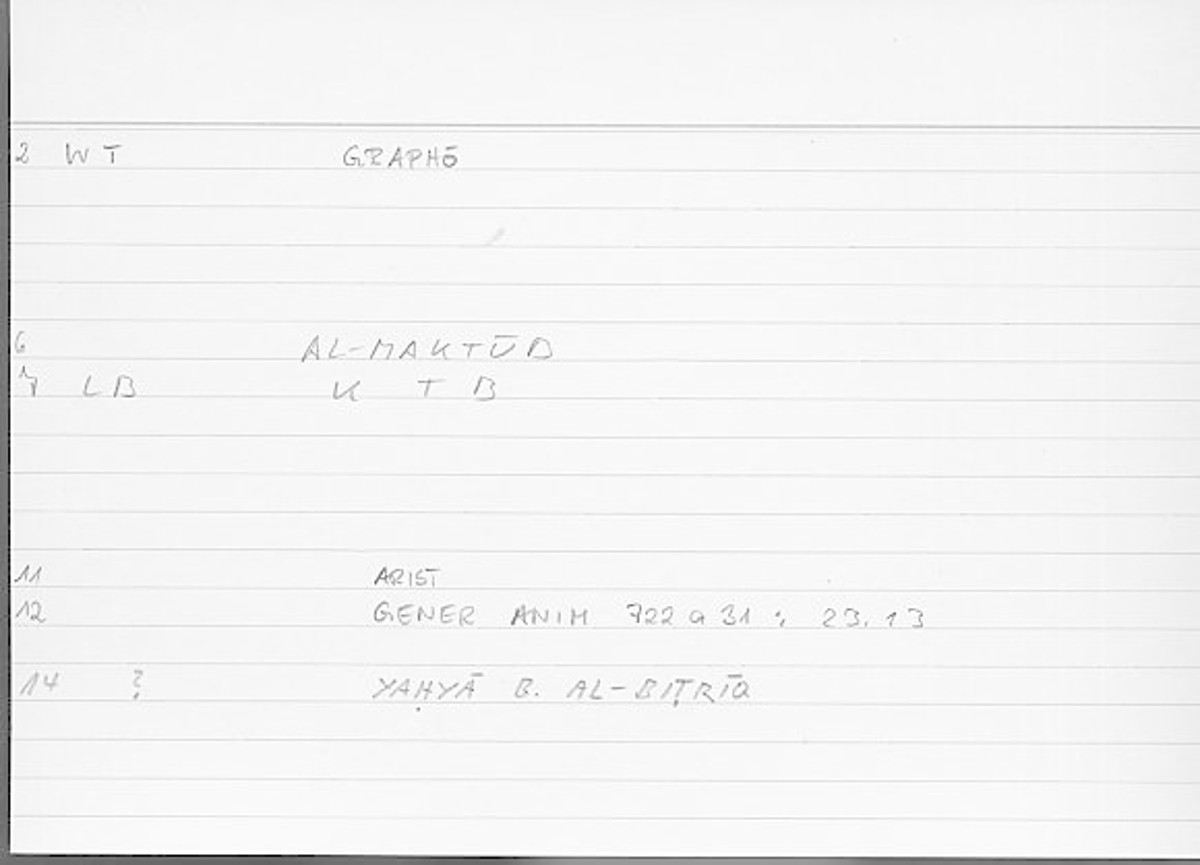 2 WT GRAPHŌ
6 AL-MAKTŪB
7 LB K T B
11 ARIST
12 GENER ANIM 722 a 31 ; 23.13
14 ? YAḤYĀ B. AL-BIṬRĪQ